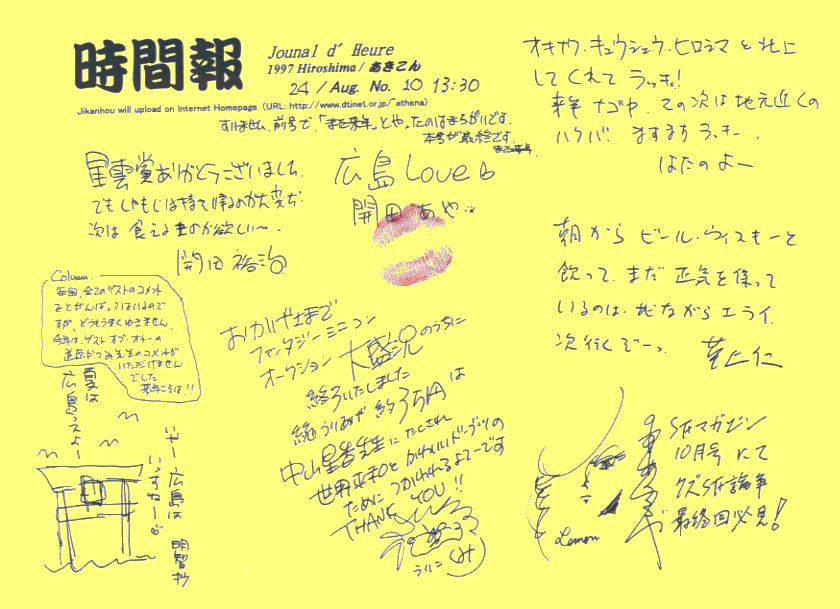 時間報
Jounal d' Heure
1997 Hiroshima / あきこん
24 / Aug. No. 10 13:30
Jikanhou will upload on Internet Homepage. (URL: http://www.dtinet.or.jp/~athena)
すいません、前号で、「また来年」とやったのはまちがいです。
本号が最終です。
また来年。
星雲賞ありがとうございました。
でもしゃもじは持って帰るのが大変だ。
次は食えるものが欲しい〜。
開田裕治
広島Love
開田あや
オキナワ・キュウシュウ・ヒロシマと北上
してくれてラッキー!
来年ナゴヤ、その次は地元近くの
ますますラッキー。
はたのよー
朝からビール・ウィスキーと
飲って、まだ正気を保って
いるのは、我ながらエライ。
次行くぞーっ。
Column
毎回、全てのゲストのコメント
をとせんばってはいるので
すが、どうもうまくゆきません。
今年は、ゲスト・オブ・オナーの
先生のコメントが
いただけません
でした
来年こそは!!
夏は
広島っスよー
いやー広島は
いっすねー
明智抄
おかげさまで
ファンタジーミニコン
オークション大盛況のうちに
終了いたしました
総うりあげ 約3万円は
中山星香先生にたくされ
世界平和とかわいいドーブツの
ために つかわれるよてーです
THANK YOU!!
Lemon
SFマガジン
10月号にて
クズSF論争
最終回必見!